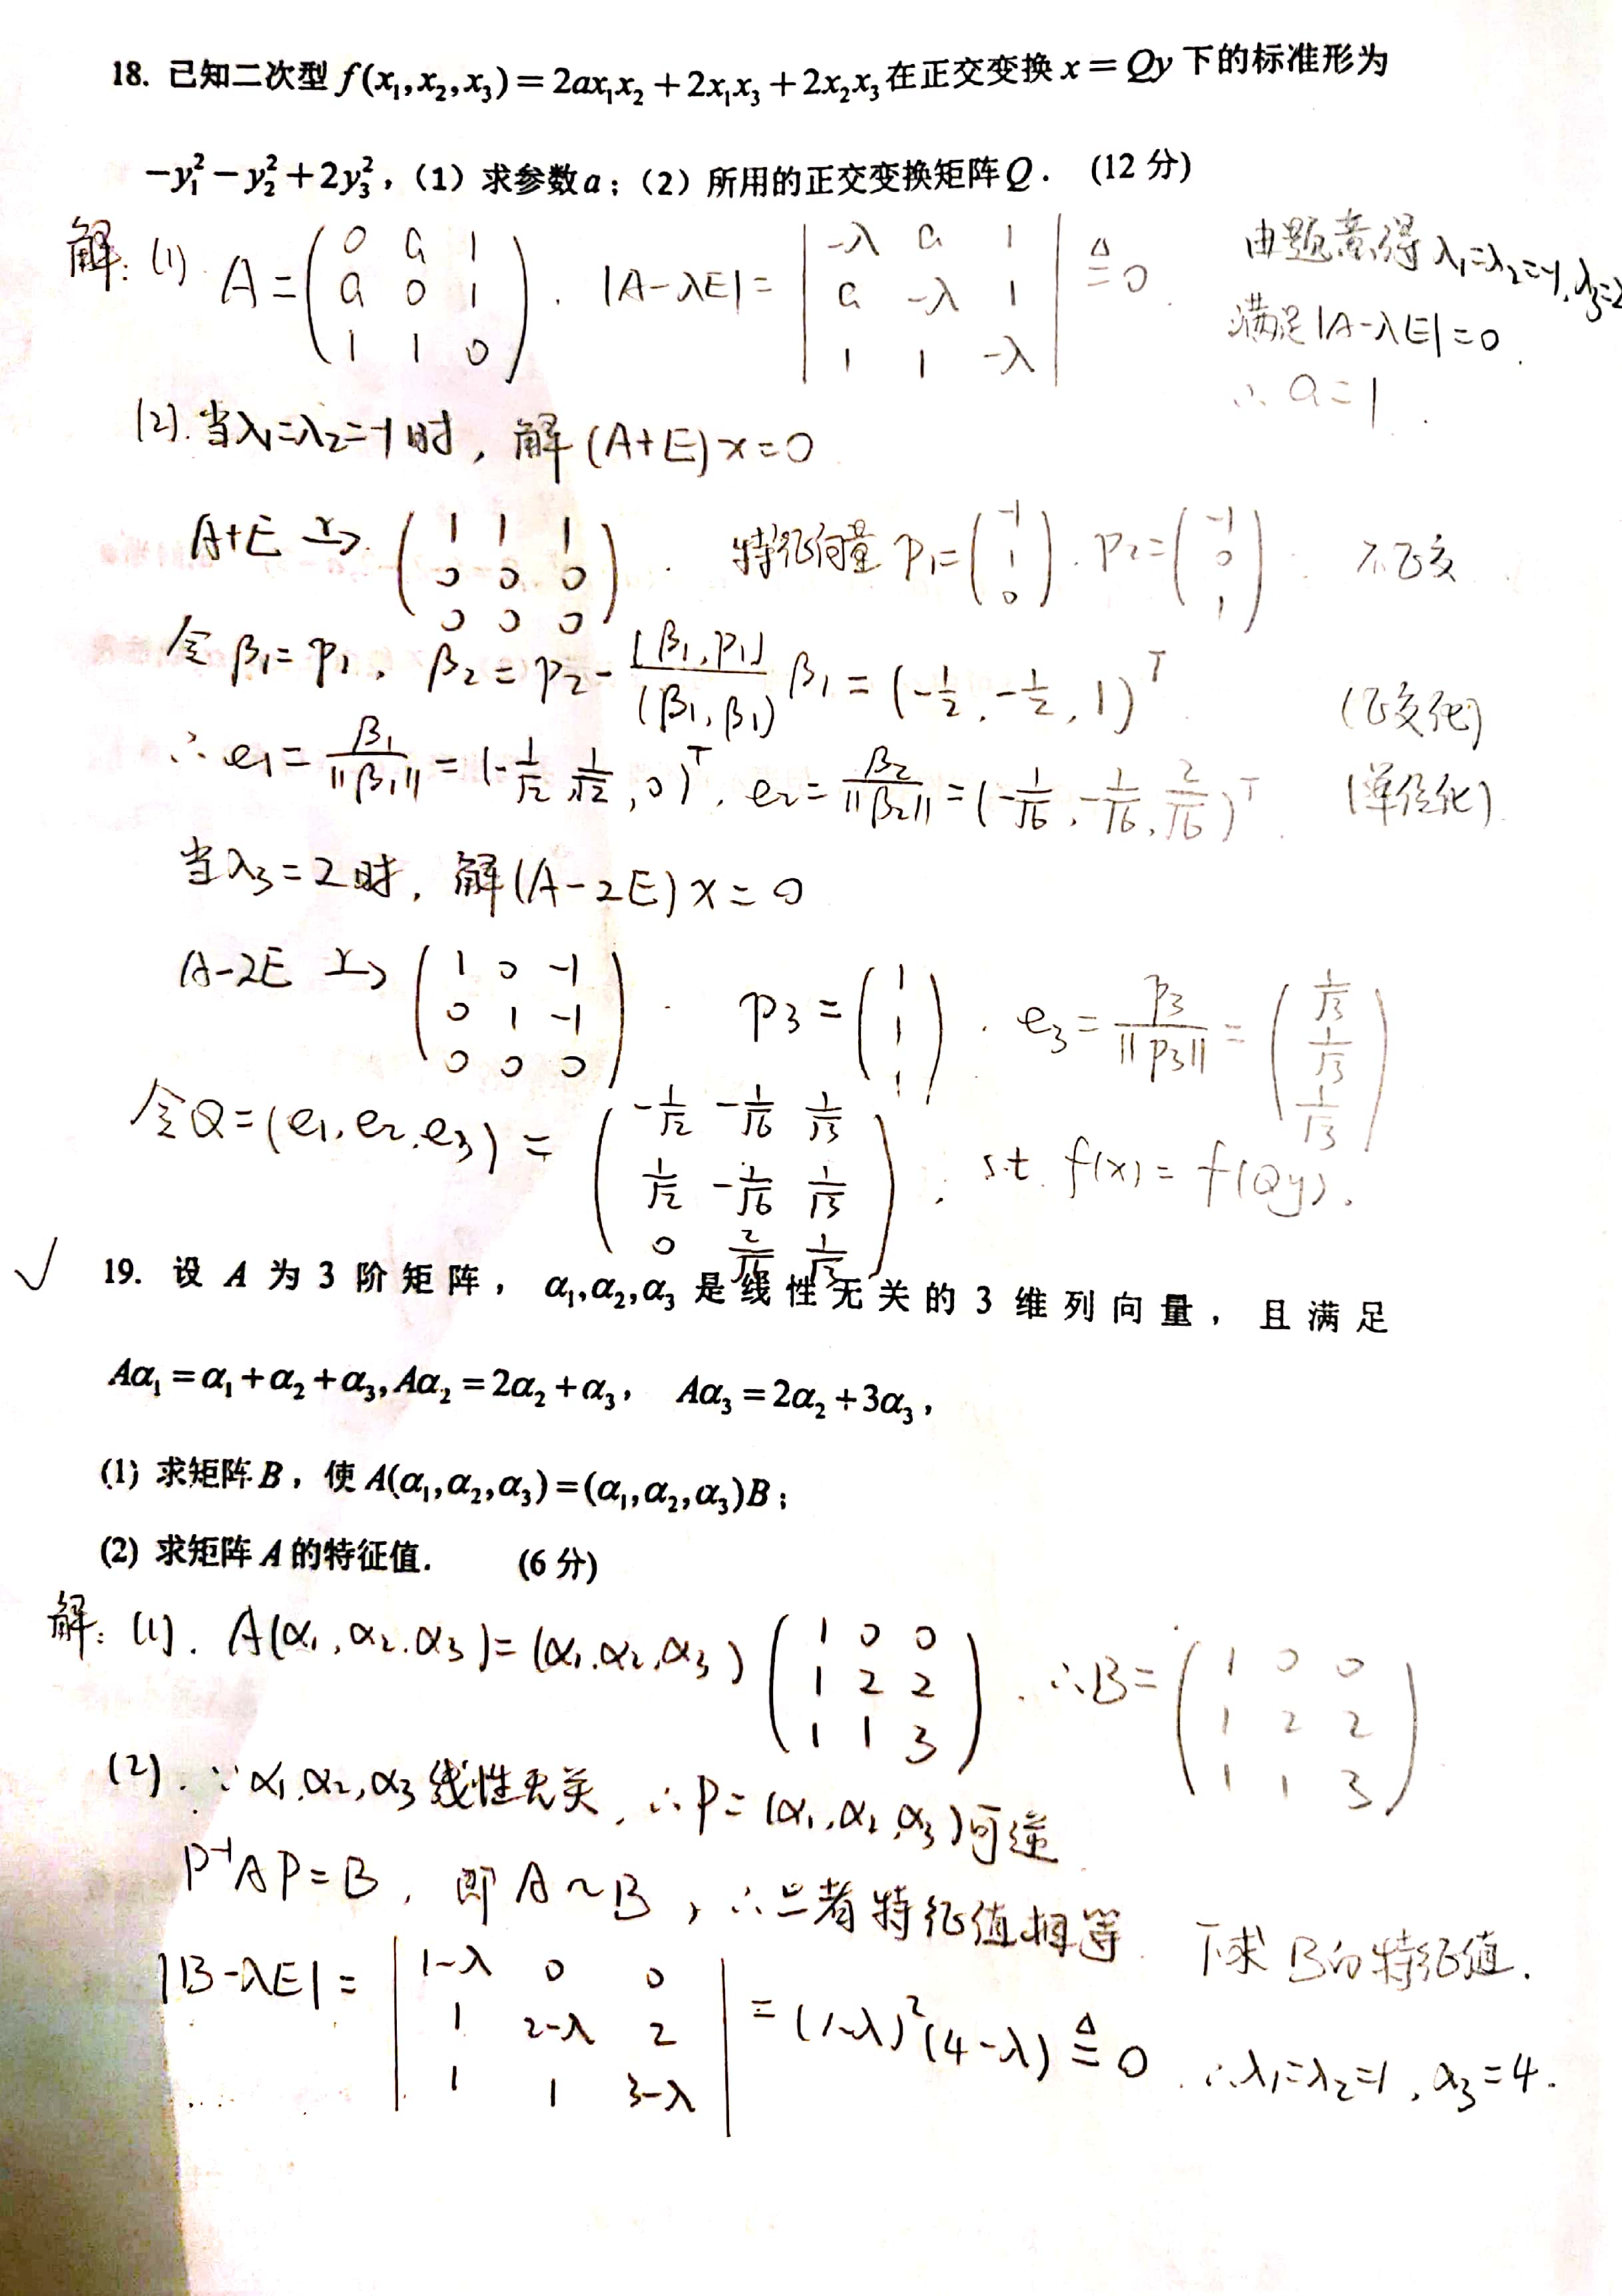 18. 已知二次型 f(x₁,x₂,x₃)=2ax₁x₂+2x₁x₃+2x₂x₃在正交变换 x=Qy 下的标准形为
-y₁²-y₂²+2y₃²,（1）求参数a;（2）所用的正交变换矩阵Q. (12 分)
解: (1). A=(0 a 1; a 0 1; 1 1 0). |A-λE|=|-λ a 1; a -λ 1; 1 1 -λ| ≜0. 由题意得 λ₁=λ₂=-1, λ₃=2
满足|A-λE|=0.
∴ a=1.
(2). 当λ₁=λ₂=-1时, 解(A+E)x=0
A+E →r (1 1 1; 0 0 0; 0 0 0). 特征向量 P₁=(-1; 1; 0). P₂=(-1; 0; 1). 不正交
令 β₁=P₁, β₂=P₂-[β₁,P₁]/(β₁,β₁) β₁=(-1/2, -1/2, 1)ᵀ. (正交化)
∴ e₁=β₁/||β₁||=(-1/√2, 1/√2, 0)ᵀ, e₂=β₂/||β₂||=(-1/√6, -1/√6, 2/√6)ᵀ. (单位化)
当λ₃=2时, 解(A-2E)x=0
A-2E →r (1 0 -1; 0 1 -1; 0 0 0). P₃=(1; 1; 1). e₃=P₃/||P₃||=(1/√3; 1/√3; 1/√3)
令Q=(e₁,e₂,e₃)=(-1/√2 -1/√6 1/√3; 1/√2 -1/√6 1/√3; 0 2/√6 1/√3), s.t. f(x)=f(Qy).
√ 19. 设 A 为 3 阶矩阵, α₁,α₂,α₃ 是线性无关的 3 维列向量, 且满足
Aα₁=α₁+α₂+α₃, Aα₂=2α₂+α₃, Aα₃=2α₂+3α₃,
(1) 求矩阵B, 使A(α₁,α₂,α₃)=(α₁,α₂,α₃)B;
(2) 求矩阵A的特征值. (6 分)
解: (1). A(α₁,α₂,α₃)=(α₁,α₂,α₃)(1 0 0; 1 2 2; 1 1 3). ∴B=(1 0 0; 1 2 2; 1 1 3).
(2). ∵α₁,α₂,α₃线性无关, ∴P=(α₁,α₂,α₃)可逆
P⁻¹AP=B, 即A~B, ∴二者特征值相等. 下求B的特征值.
|B-λE|=|1-λ 0 0; 1 2-λ 2; 1 1 3-λ|=(1-λ)²(4-λ)≜0. ∴λ₁=λ₂=1, λ₃=4.